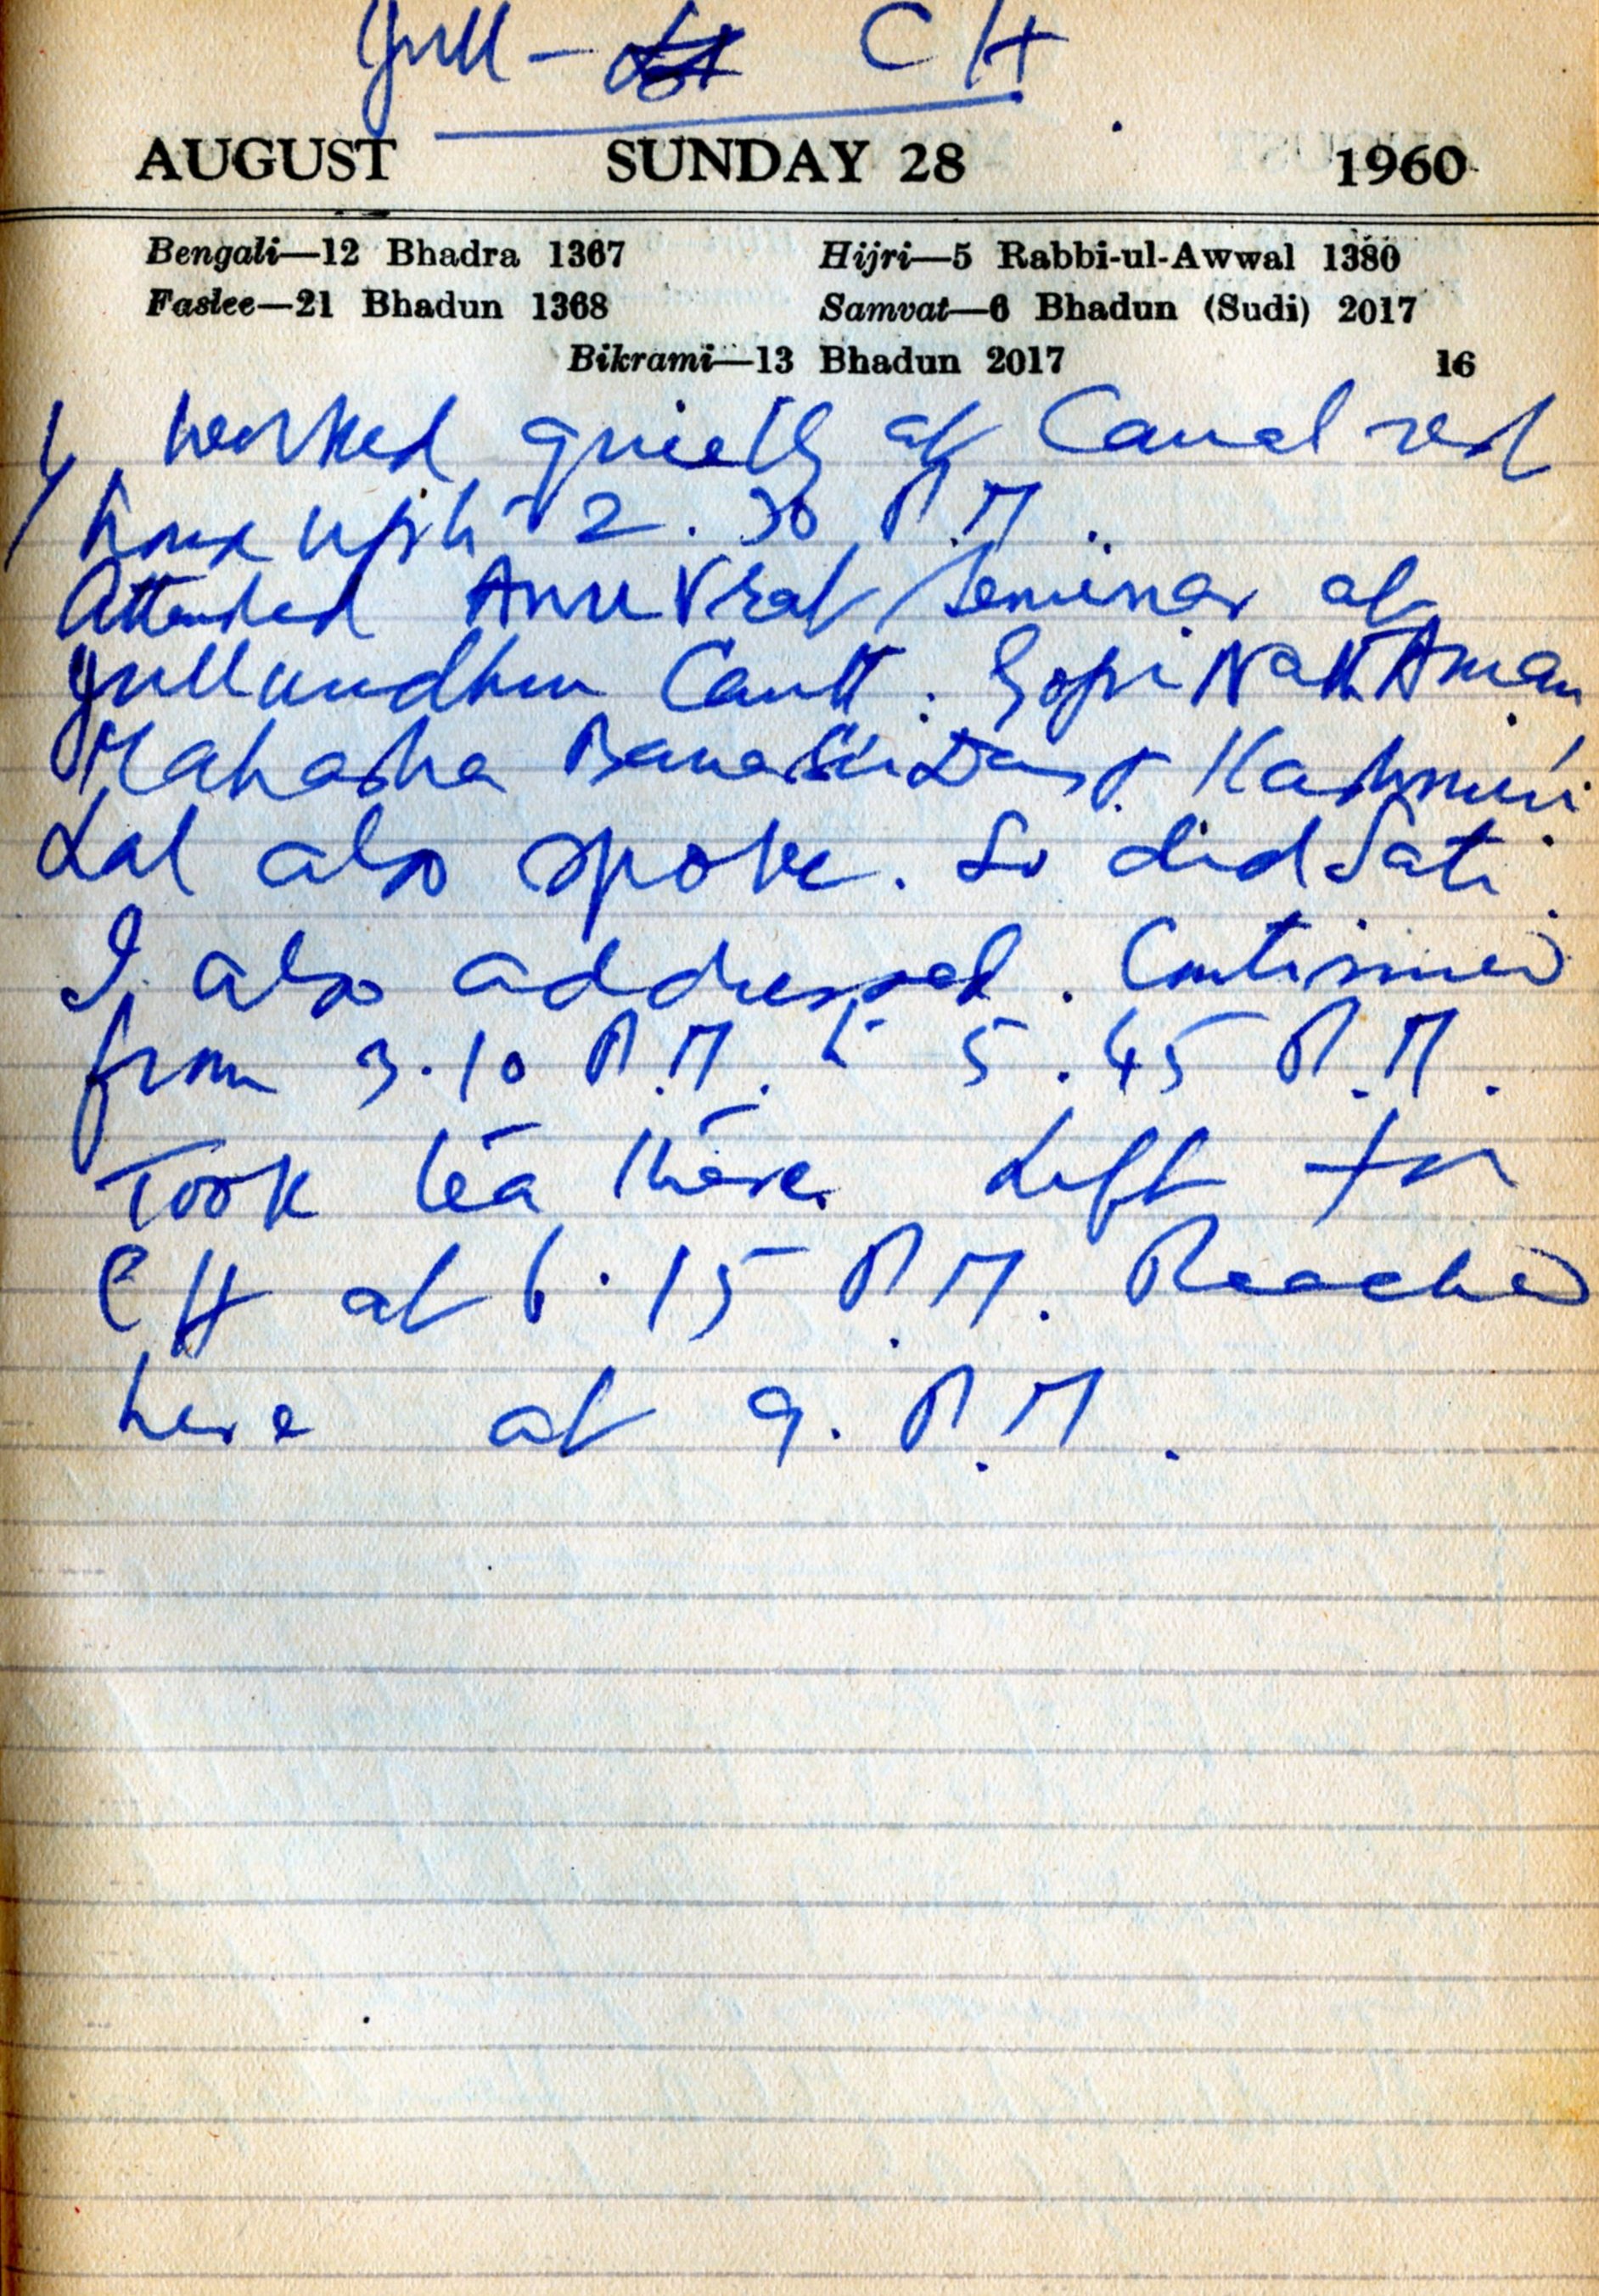 Jull - CH
AUGUST SUNDAY 28 1960
Bengali—12 Bhadra 1367 Hijri—5 Rabbi-ul-Awwal 1380
Faslee—21 Bhadun 1368 Samvat—6 Bhadun (Sudi) 2017
Bikrami—13 Bhadun 2017 16
worked quietly at Canal rest
house upto 2.30 P.M.
Attended Anuvrat Seminar at
Jullundhur Cantt. Gopi Nath Aman
Mahasha Banarsi Das, Kashmiri
Lal also spoke. So did Sati.
I also addressed. Continued
from 3.10 P.M. to 5.45 P.M.
Took tea there. Left for
CH at 6.15 P.M. Reached
here at 9. P.M.